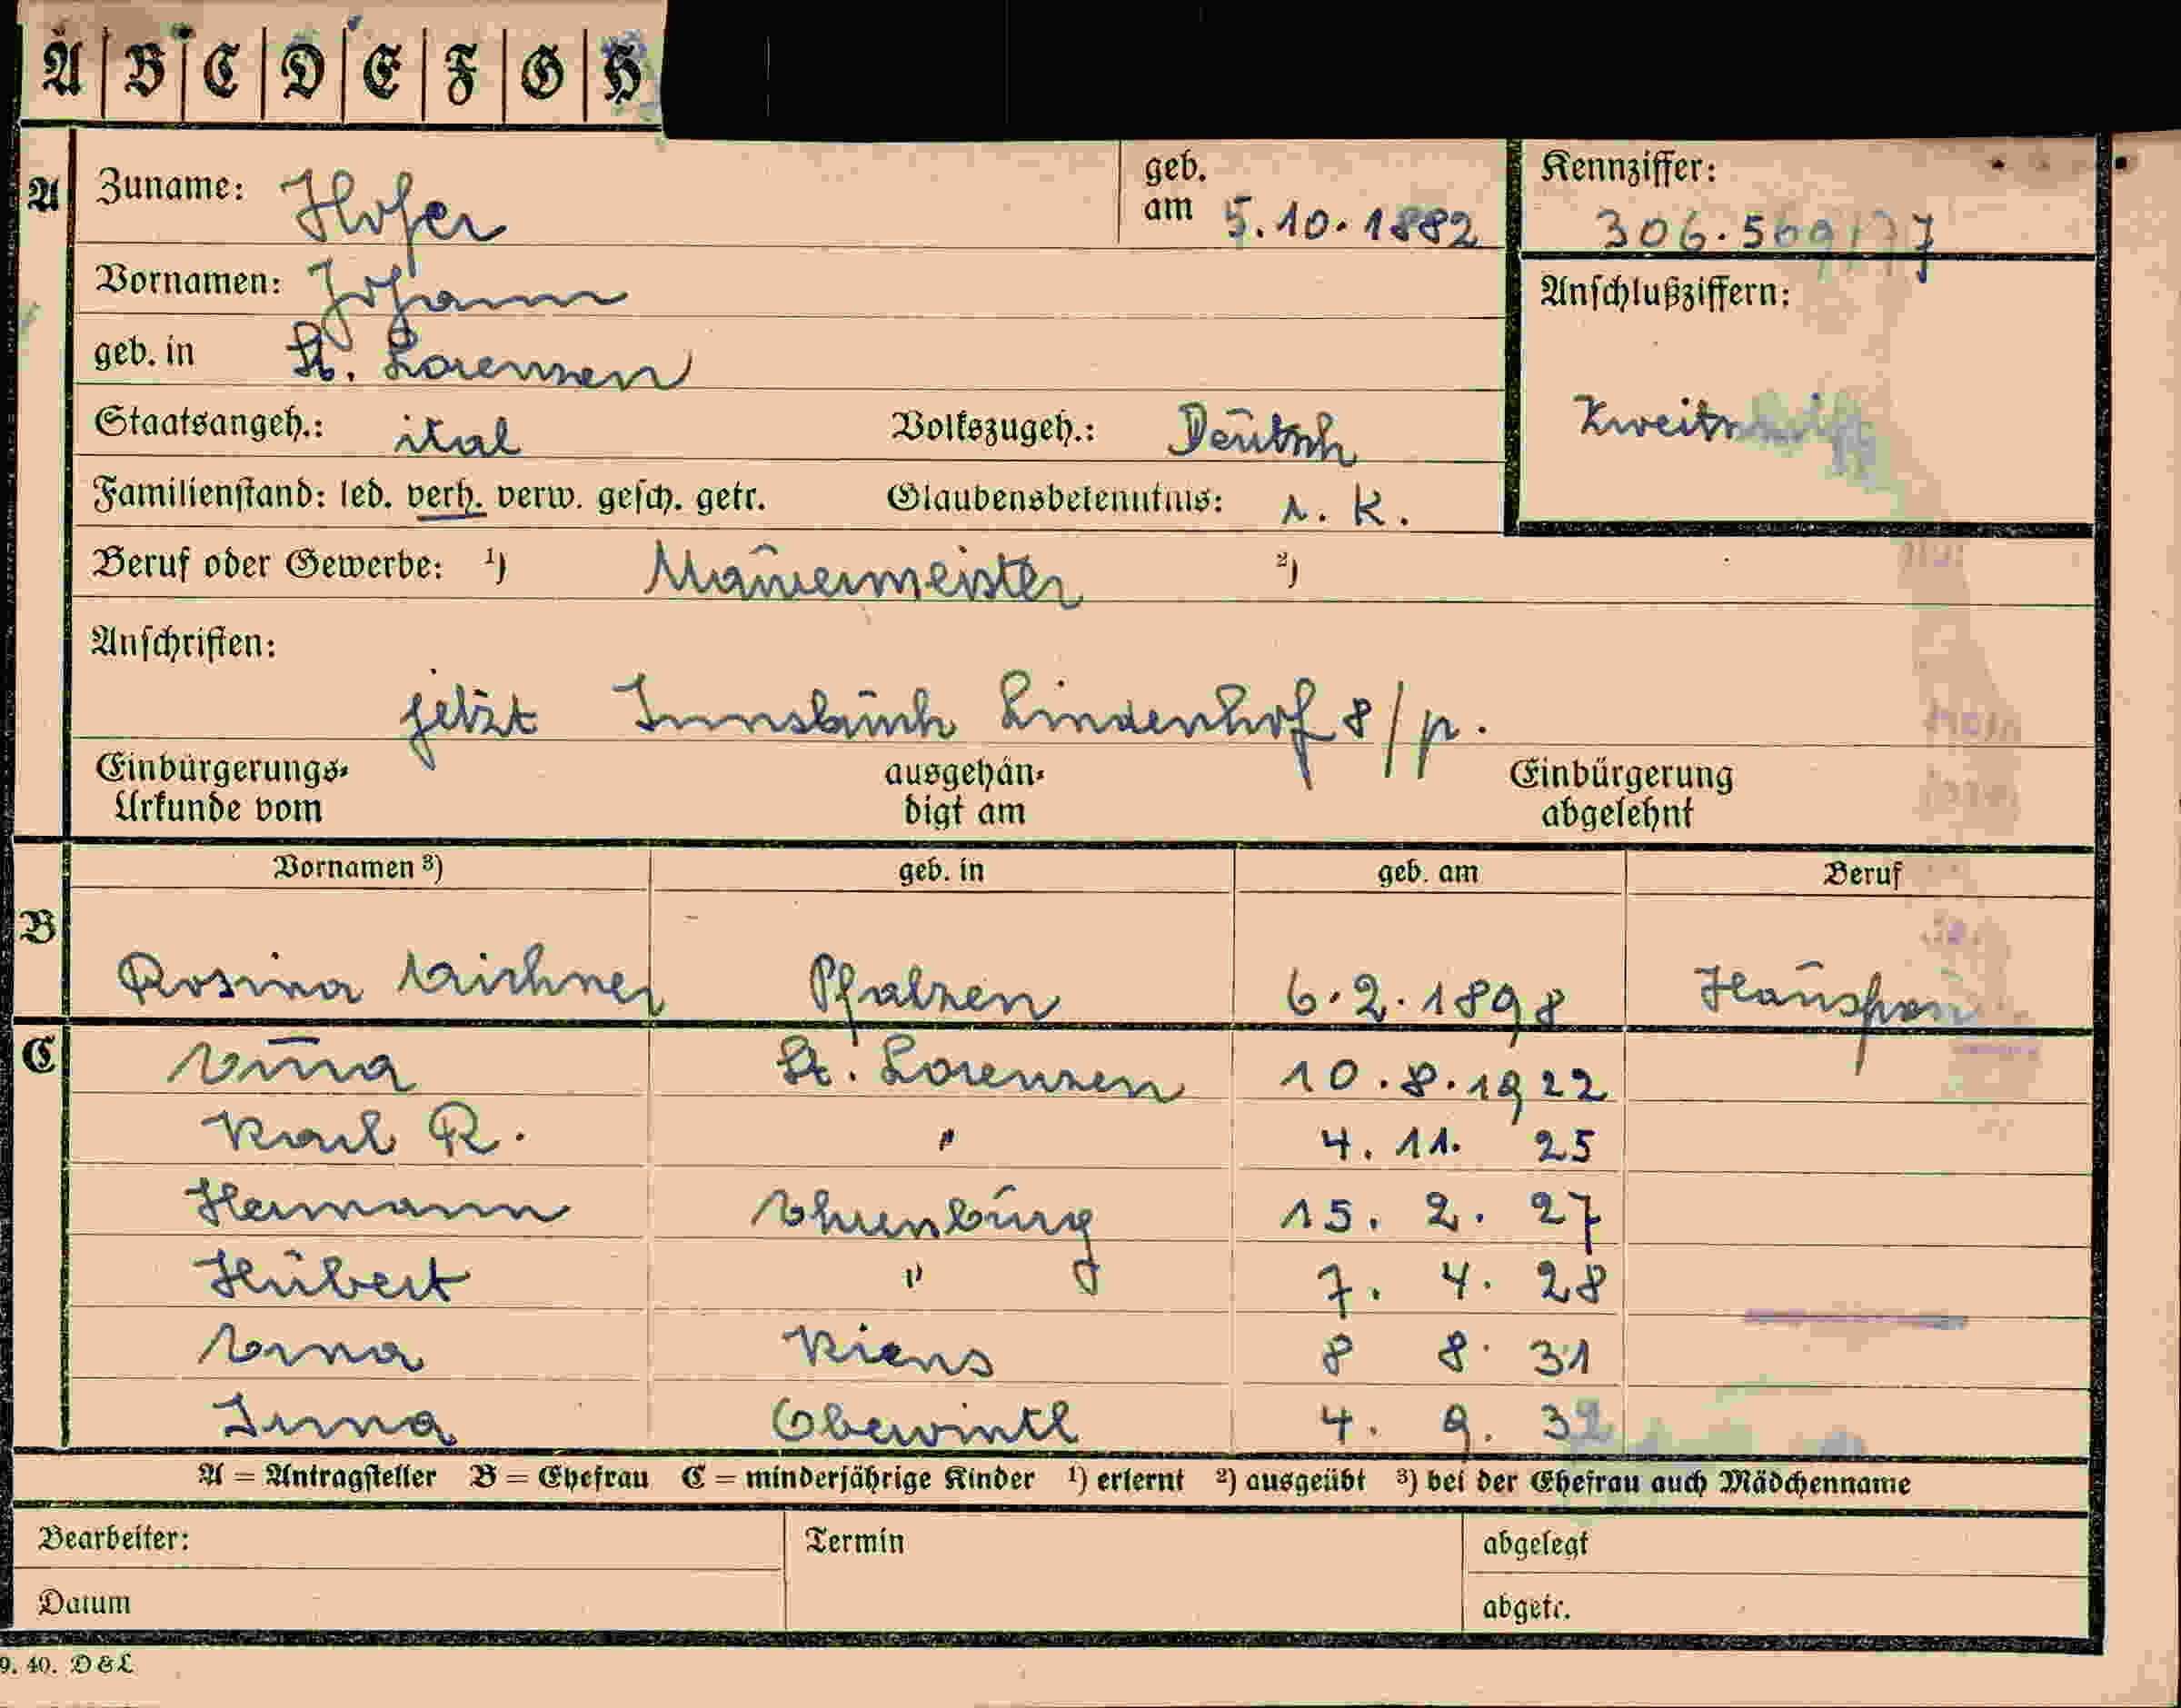 A | B | C | D | E | F | G | H
A
Zuname: Hofer
geb. am 5.10.1882
Kennziffer: 306.569/37
Vornamen: Johann
Anschlußziffern:
geb. in St. Lorenzen
Zweitschrift
Staatsangeh.: ital Volkszugeh.: Deutsch
Familienstand: led. verh. verw. gesch. getr. Glaubensbekenntnis: r. k.
Beruf oder Gewerbe: ¹) Mauermeister ²)
Anschriften:
jetzt Innsbruck Lindenhof 8/p.
Einbürgerungs-Urkunde vom
ausgehändigt am
Einbürgerung abgelehnt
Vornamen ³) geb. in geb. am Beruf
B
Rosina Kirchner Pfalzen 6.2.1898 Hausfrau
C
St. Lorenzen 10.8.1922
Karl R. " 4. 11. 25
Hermann Ehrenburg 15. 2. 27
Hubert " 7. 4. 28
Erna Kiens 8 8. 31
Irma Obervintl 4. 9. 32
A = Antragsteller B = Ehefrau C = minderjährige Kinder ¹) erlernt ²) ausgeübt ³) bei der Ehefrau auch Mädchenname
Bearbeiter: Termin abgelegt
Datum abgetr.
9. 40. D & L